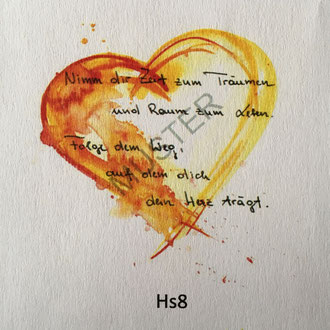 Nimm dir Zeit zum Träumen
und Raum zum Leben.
Folge dem Weg,
auf dem dich
dein Herz trägt.
MUSTER
Hs8